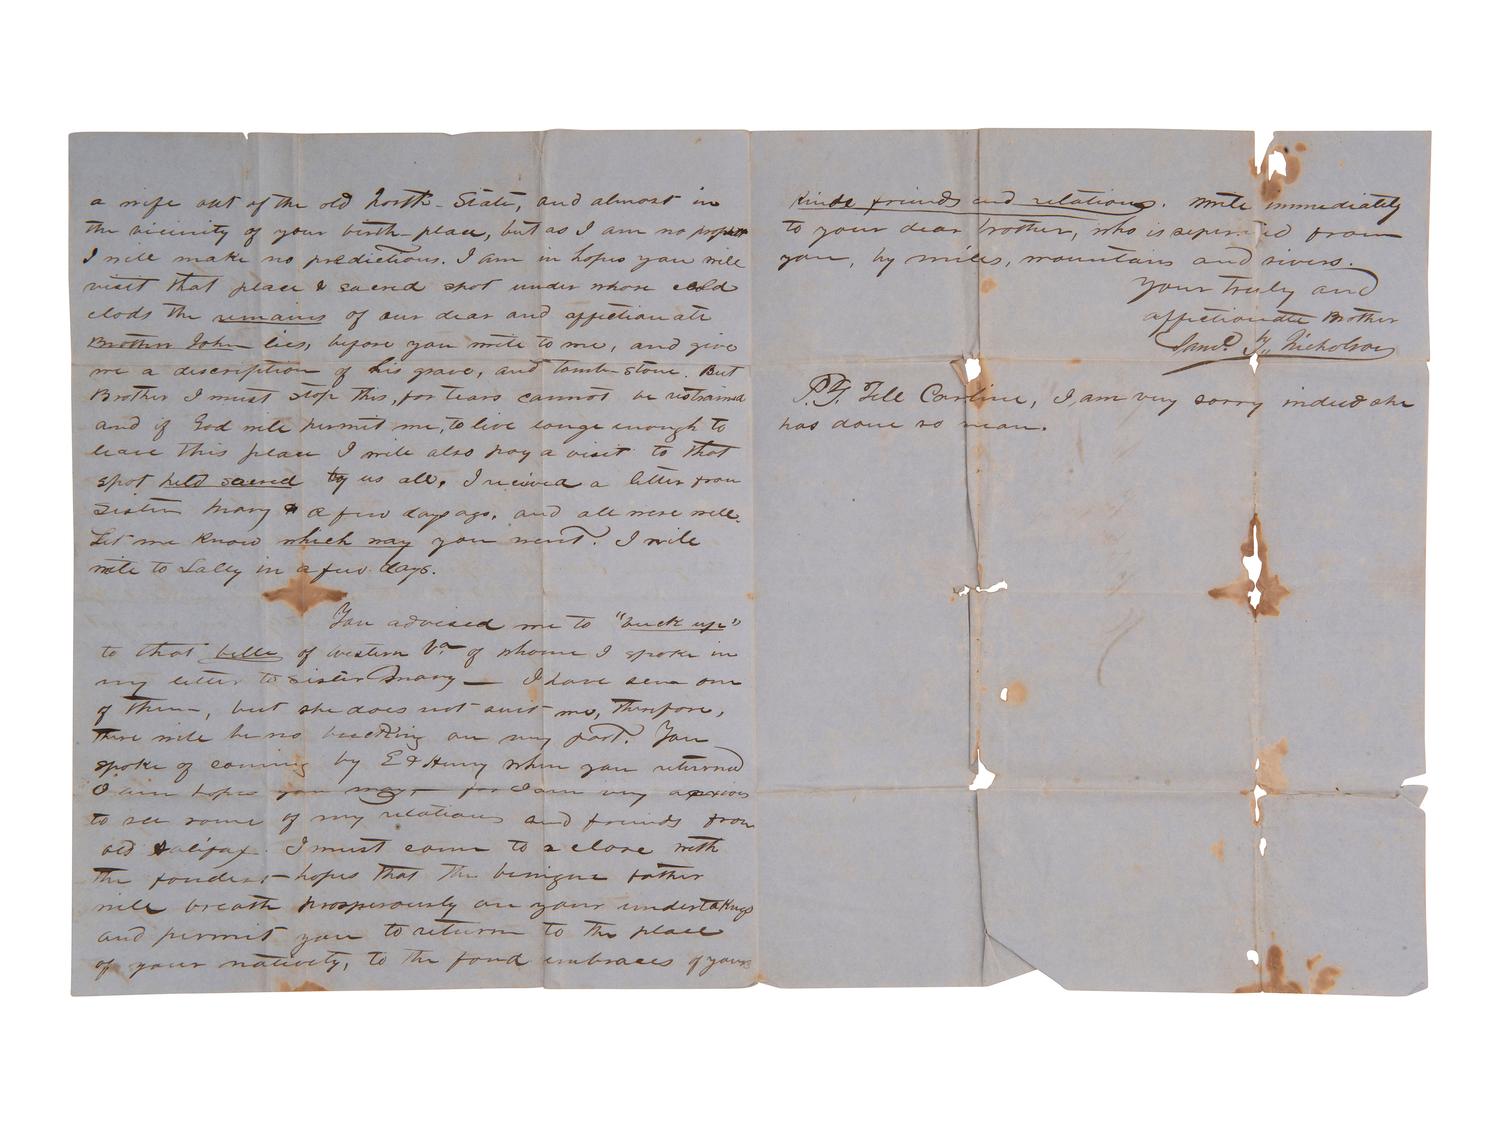 a wife out of the old North-State, and almost in
the vicinity of your birth-place, but as I am no prophet
I will make no predictions. I am in hopes you will
visit that place & sacred spot under whose cold
clods the remains of our dear and affectionate
Brother John lies, before you write to me, and give
me a discription of his grave, and tomb-stone. But
Brother I must stop this, for tears cannot be restrained
and if God will permit me, to live longe enough to
leave this place I will also pay a visit to that
spot held sacred by us all. I reccived a letter from
Sister Mary a few days ago, and all were well.
Let me know which way you went. I will
write to Sally in a few days.
You advised me to "buck up"
to that belle of western Va of whome I spoke in
my letter to sister Mary — I have seen one
of them, but she does not suit me, therefore,
there will be no bucking on my part. You
spoke of coming by E & Henry when you returned
I am hopes you may, for I am very anxious
to see some of my relations and friends from
old Halifax. I must come to a close with
the fondest hopes that the benigne father
will breath prosperously on your undertakings
and permit you to return to the place
of your nativity, to the fond embraces of your
kinde friends and relations. Write immediately
to your dear brother, who is seperated from
you, by miles, mountans and rivers.
Your truly and
affectionate Brother
Saml. Nicholson
Tell Caroline, I am very sorry indeed she
has done so mean.